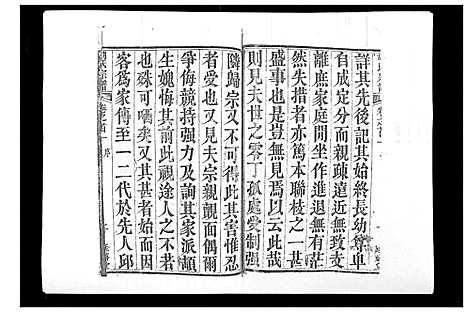 詳其先後記其始終長幼尊卑
自成定分而親疎遠近無致支
離庶家庭間坐作進退無有茫
然失措者亦篤本聯枝之一大
盛事也是豈無見焉以云此哉
則見夫世之零丁孤處受制强
隣歸宗又不可得此其害惟忍
者受也又見夫宗親覿面偶爾
爭侮競持强力若問其家派顛
生媿悔其諭此視途人之不若
也殊可嗤矣又其甚者始而因
客爲家傳至一二代於先人邱